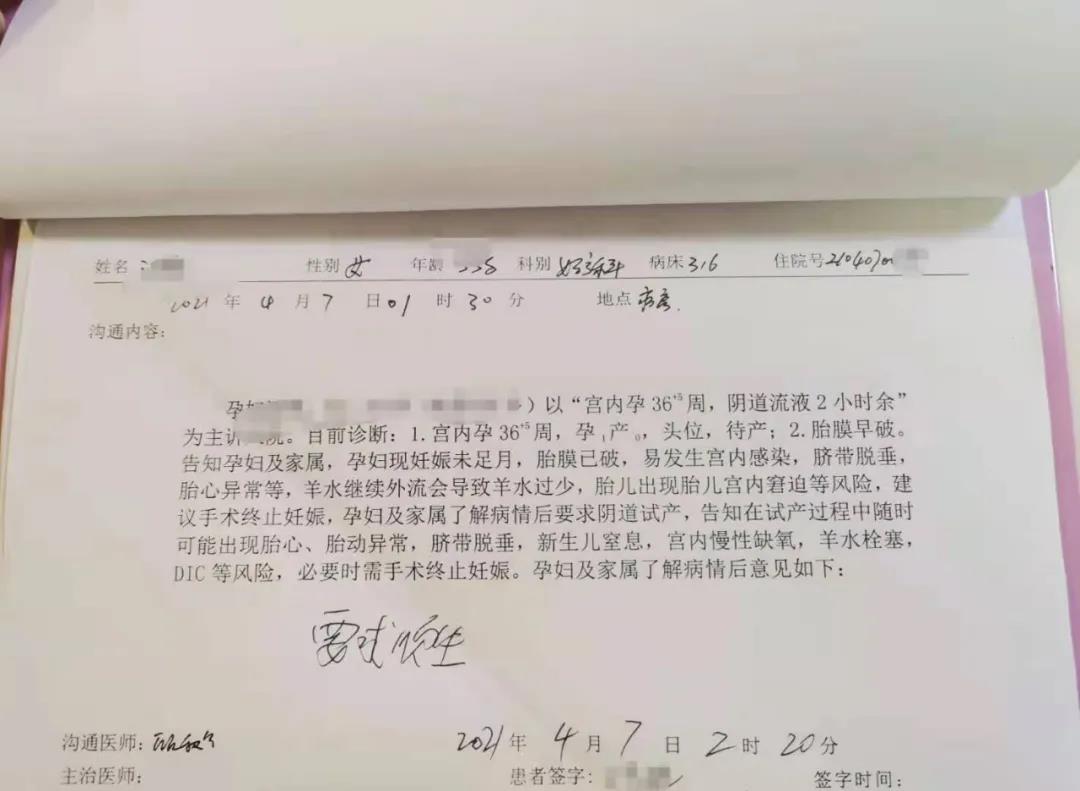 姓名 性别 女 年龄 科别 妇产科 病床 316 住院号
2021 年 4 月 7 日 01 时 30 分 地点 病房
沟通内容：
孕妇 ）以“宫内孕36⁺⁵周，阴道流液2小时余”
为主诉 院。目前诊断：1.宫内孕36⁺⁵周，孕₁产₀，头位，待产；2.胎膜早破。
告知孕妇及家属，孕妇现妊娠未足月，胎膜已破，易发生宫内感染，脐带脱垂，
胎心异常等，羊水继续外流会导致羊水过少，胎儿出现胎儿宫内窘迫等风险，建
议手术终止妊娠，孕妇及家属了解病情后要求阴道试产，告知在试产过程中随时
可能出现胎心、胎动异常，脐带脱垂，新生儿窒息，宫内慢性缺氧，羊水栓塞，
DIC等风险，必要时需手术终止妊娠。孕妇及家属了解病情后意见如下：
要求顺生
沟通医师： 2021 年 4 月 7 日 2 时 20 分
主治医师： 患者签字： 签字时间：